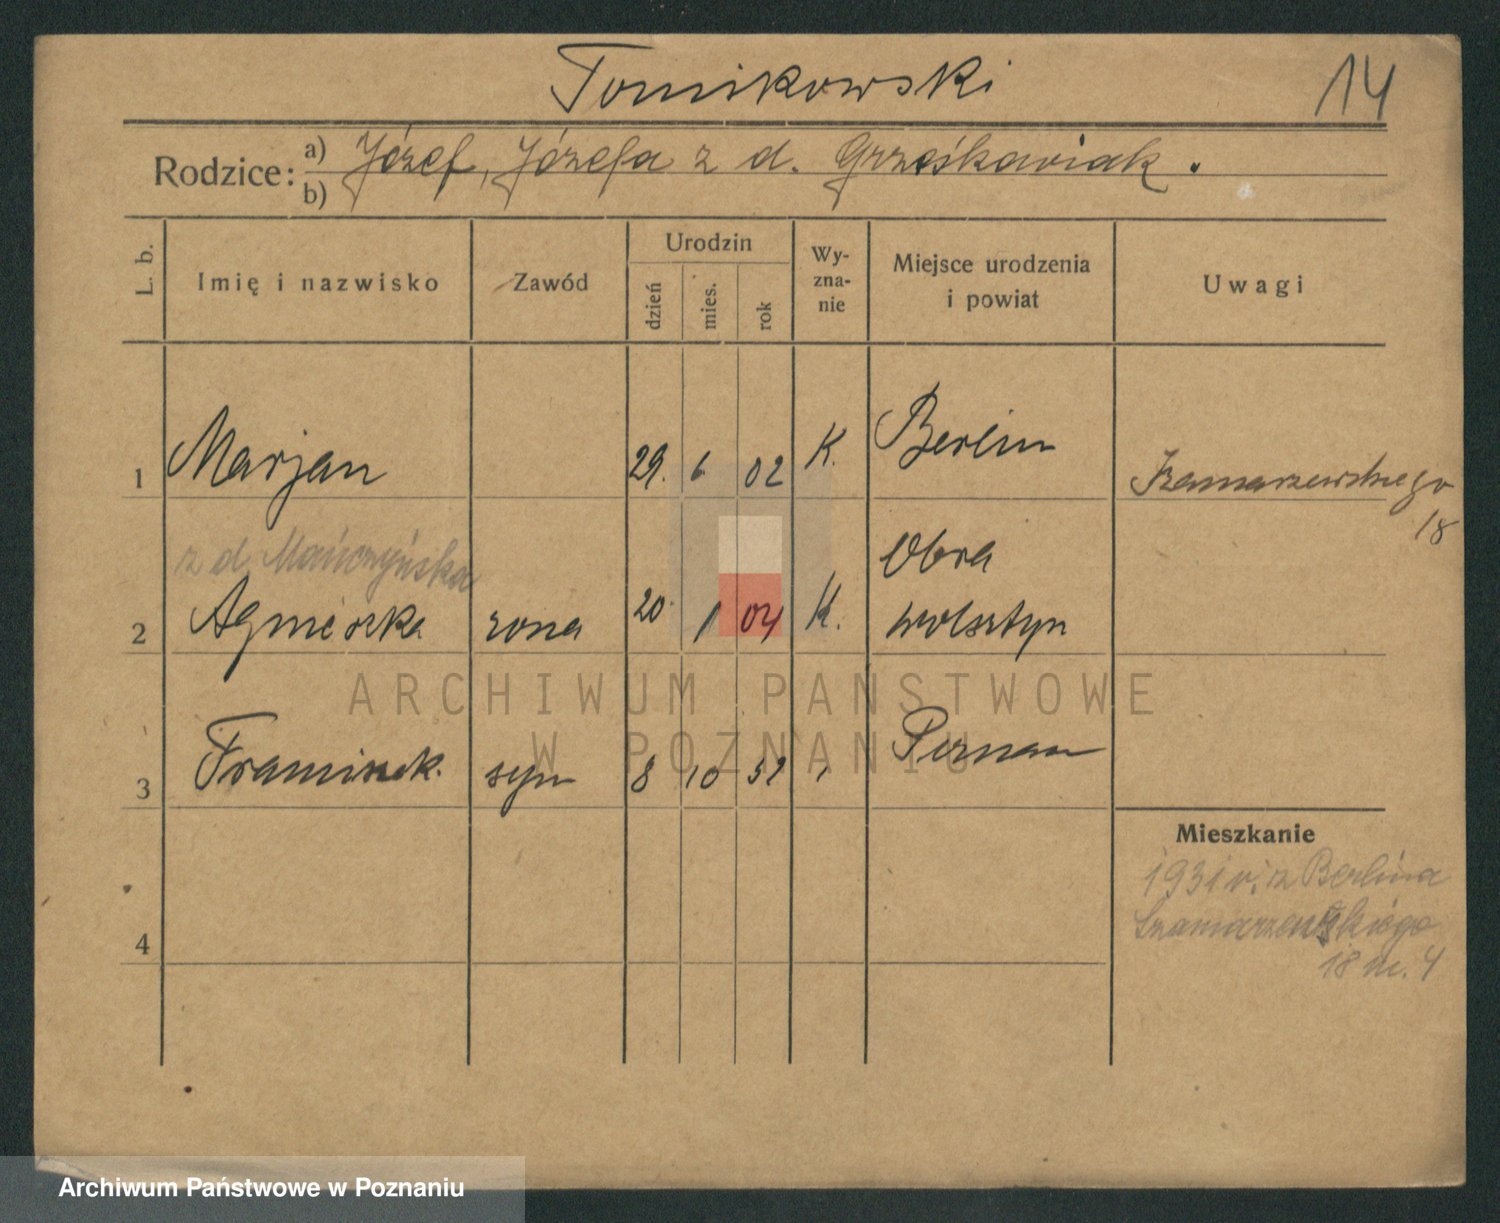 Tomikowski
14
Rodzice: a) Józef, Józefa z d. Grześkawiak.
b)
L. b.
Imię i nazwisko
Zawód
Urodzin
dzień
mies.
rok
Wy-
zna-
nie
Miejsce urodzenia
i powiat
Uwagi
1 Marjan 29. 6 02 K. Berlin
18
z d.
2 Agnieszka zona 20 1 04 K. Obra
Wolsztyn
3 syn 8 10
Mieszkanie
1931 r. z Berlina
Szamarzewskiego
18 m. 4
4
ARCHIWUM PAŃSTWOWE
W POZNANIU
Archiwum Państwowe w Poznaniu